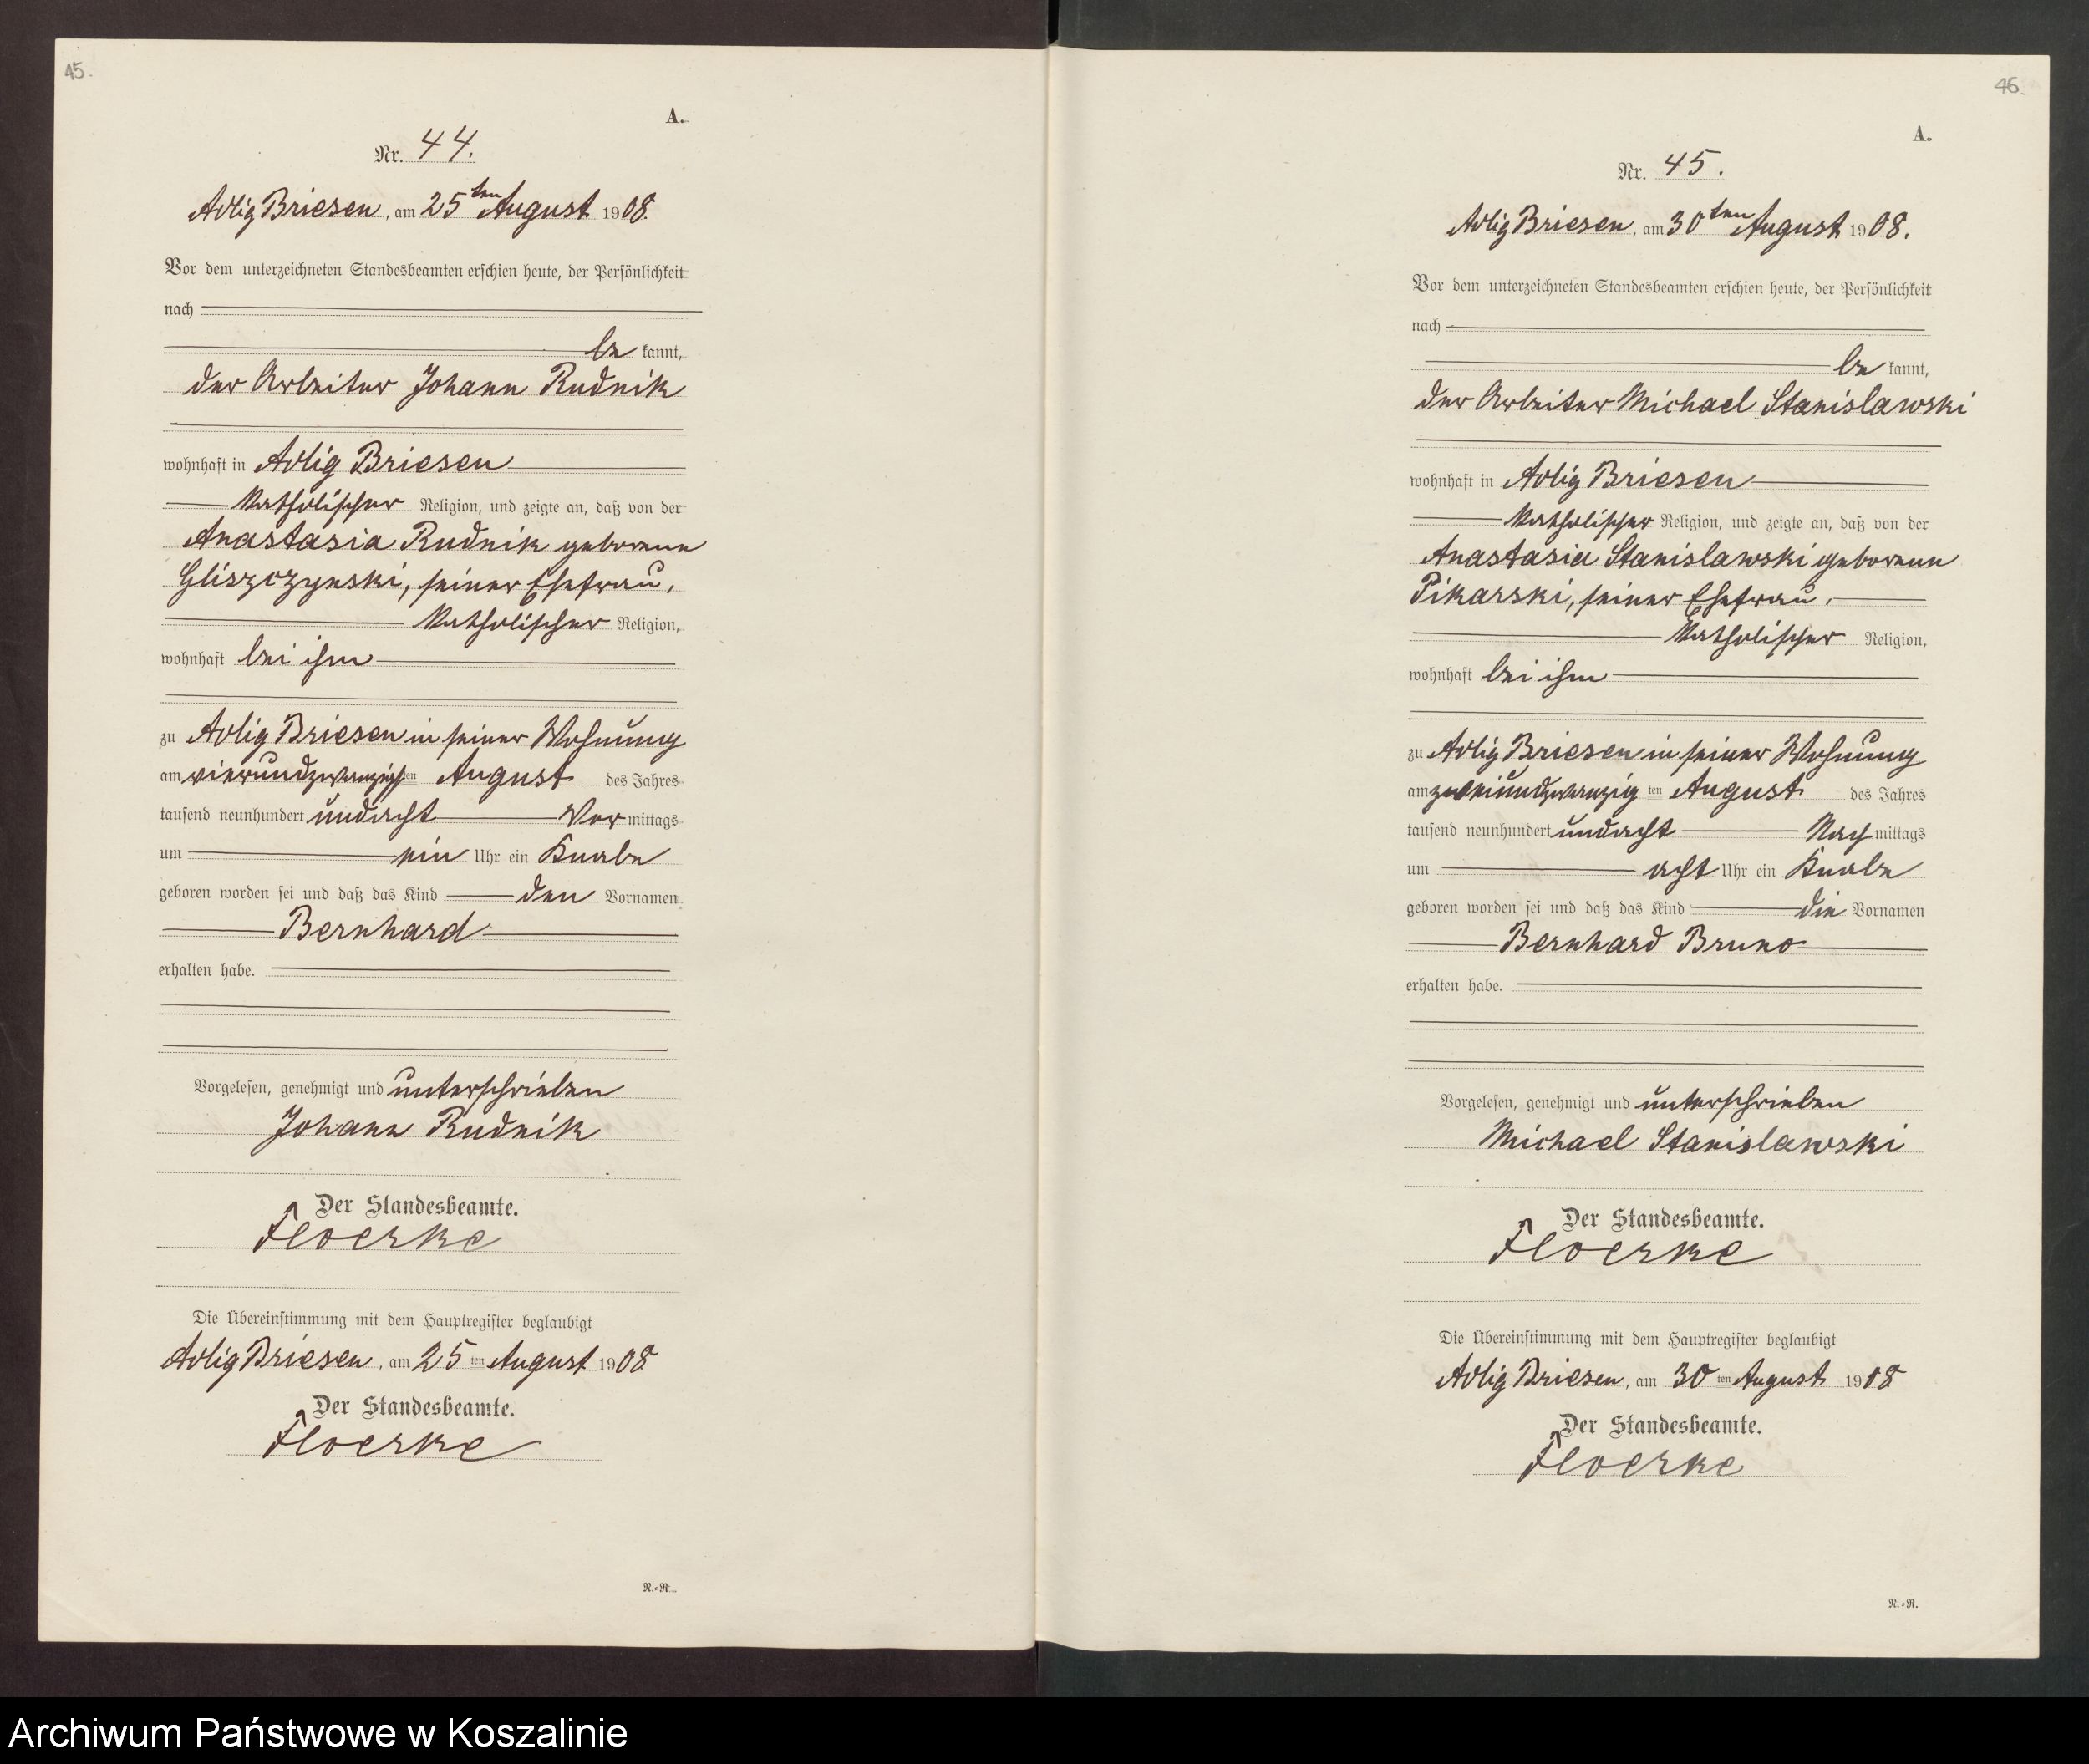 45.
A.
Nr. 44.
Adlig Briesen, am 25ten August 1908.
Vor dem unterzeichneten Standesbeamten erschien heute, der Persönlichkeit
nach
be kannt,
der Arbeiter Johann Rudnik
wohnhaft in Adlig Briesen
katholischer Religion, und zeigte an, daß von der
Anastasia Rudnik geborenen
Gliszczynski, seiner Ehefrau,
katholischer Religion,
wohnhaft bei ihm
zu Adlig Briesen in seiner Wohnung
am vierundzwanzigsten August des Jahres
tausend neunhundert undacht Vor mittags
um ein Uhr ein Knabe
geboren worden sei und daß das Kind den Vornamen
Bernhard
erhalten habe.
Vorgelesen, genehmigt und unterschrieben
Johann Rudnik
Der Standesbeamte.
Floerke
Die Übereinstimmung mit dem Hauptregister beglaubigt
Adlig Briesen, am 25 ten August 1908
Der Standesbeamte.
Floerke
N.=R.
46.
A.
Nr. 45.
Adlig Briesen, am 30ten August 1908.
Vor dem unterzeichneten Standesbeamten erschien heute, der Persönlichkeit
nach
be kannt,
der Arbeiter Michael Stanislawski
wohnhaft in Adlig Briesen
katholischer Religion, und zeigte an, daß von der
Anastasia Stanislawski geborenen
Pikarski, seiner Ehefrau,
katholischer Religion,
wohnhaft bei ihm
zu Adlig Briesen in seiner Wohnung
am zweiundzwanzig ten August des Jahres
tausend neunhundert undacht Nach mittags
um acht Uhr ein Knabe
geboren worden sei und daß das Kind die Vornamen
Bernhard Bruno
erhalten habe.
Vorgelesen, genehmigt und unterschrieben
Michael Stanislawski
Der Standesbeamte.
Floerke
Die Übereinstimmung mit dem Hauptregister beglaubigt
Adlig Briesen, am 30 ten August 1908
Der Standesbeamte.
Floerke
N.=R.
Archiwum Państwowe w Koszalinie